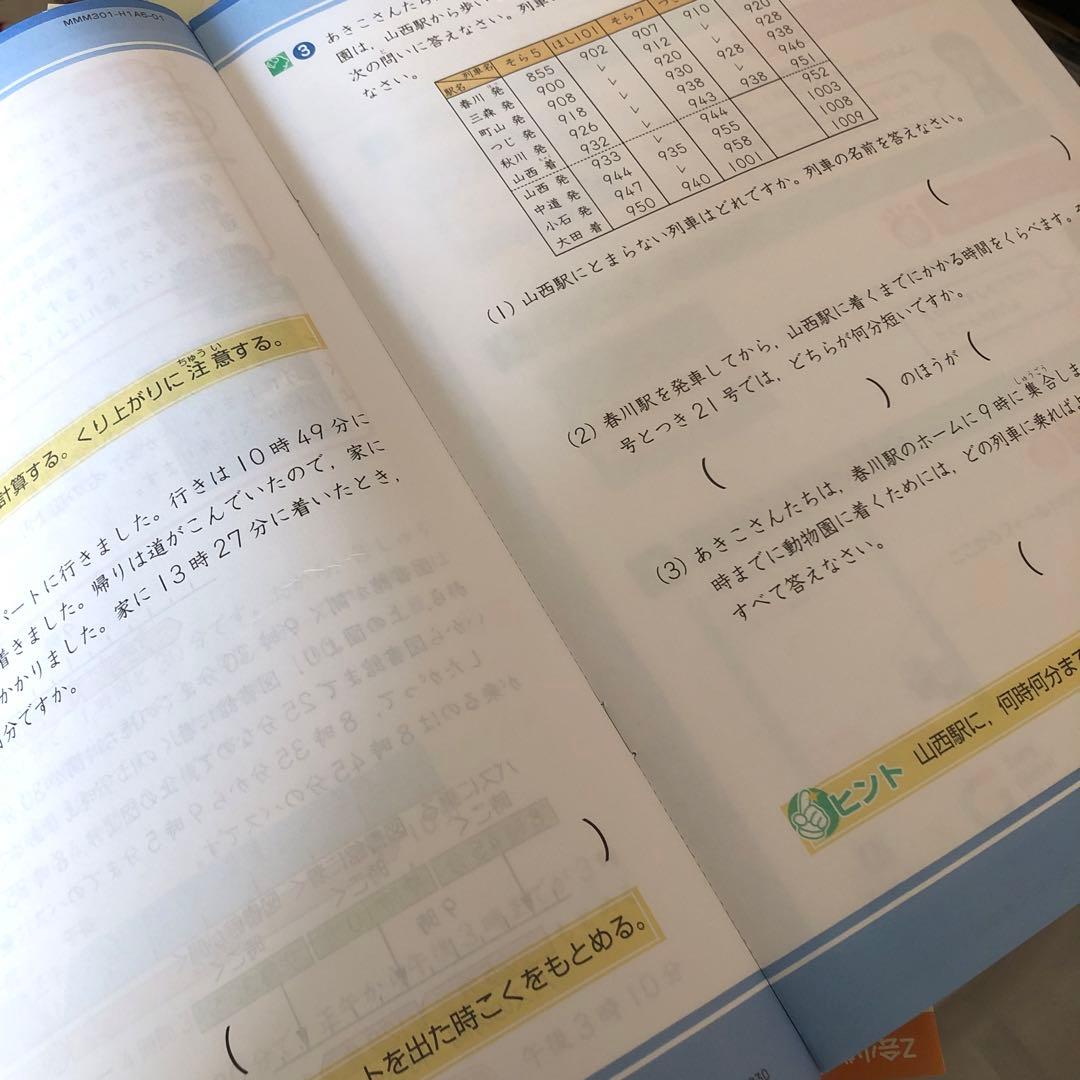 MMM301-H1A6-01
計算する。くり上がりに注意する。
ちゅうい
パートに行きました。行きは10時49分に
着きました。帰りは道がこんでいたので，家に
かかりました。家に13時27分に着いたとき，
分ですか。
( )
トを出た時こくをもとめる。
3 あきこさんたち
園は，山西駅から歩い
次の問いに答えなさい。列車
なさい。
列車名 駅名 そら5 ほし101 そら7
春川 発 855 902 907 910 920
三森 発 900 レ 912 レ 928
町山 発 908 レ 920 レ 938
つじ 発 918 レ 930 928 946
秋川 発 926 レ 938 レ 951
山西 着 932 レ 943 938 952
山西 発 933 レ 944 1003
中道 発 944 935 955 1008
小石 発 947 レ 958 1009
大田 着 950 940 1001
(1) 山西駅にとまらない列車はどれですか。列車の名前を答えなさい。
( )
(2) 春川駅を発車してから，山西駅に着くまでにかかる時間をくらべます。
号とつき21号では，どちらが何分短いですか。
( ) のほうが (
(3) あきこさんたちは，春川駅のホームに9時に集合しま
しゅうごう
時までに動物園に着くためには，どの列車に乗れば
すべて答えなさい。
(
ヒント 山西駅に，何時何分ま
Z会